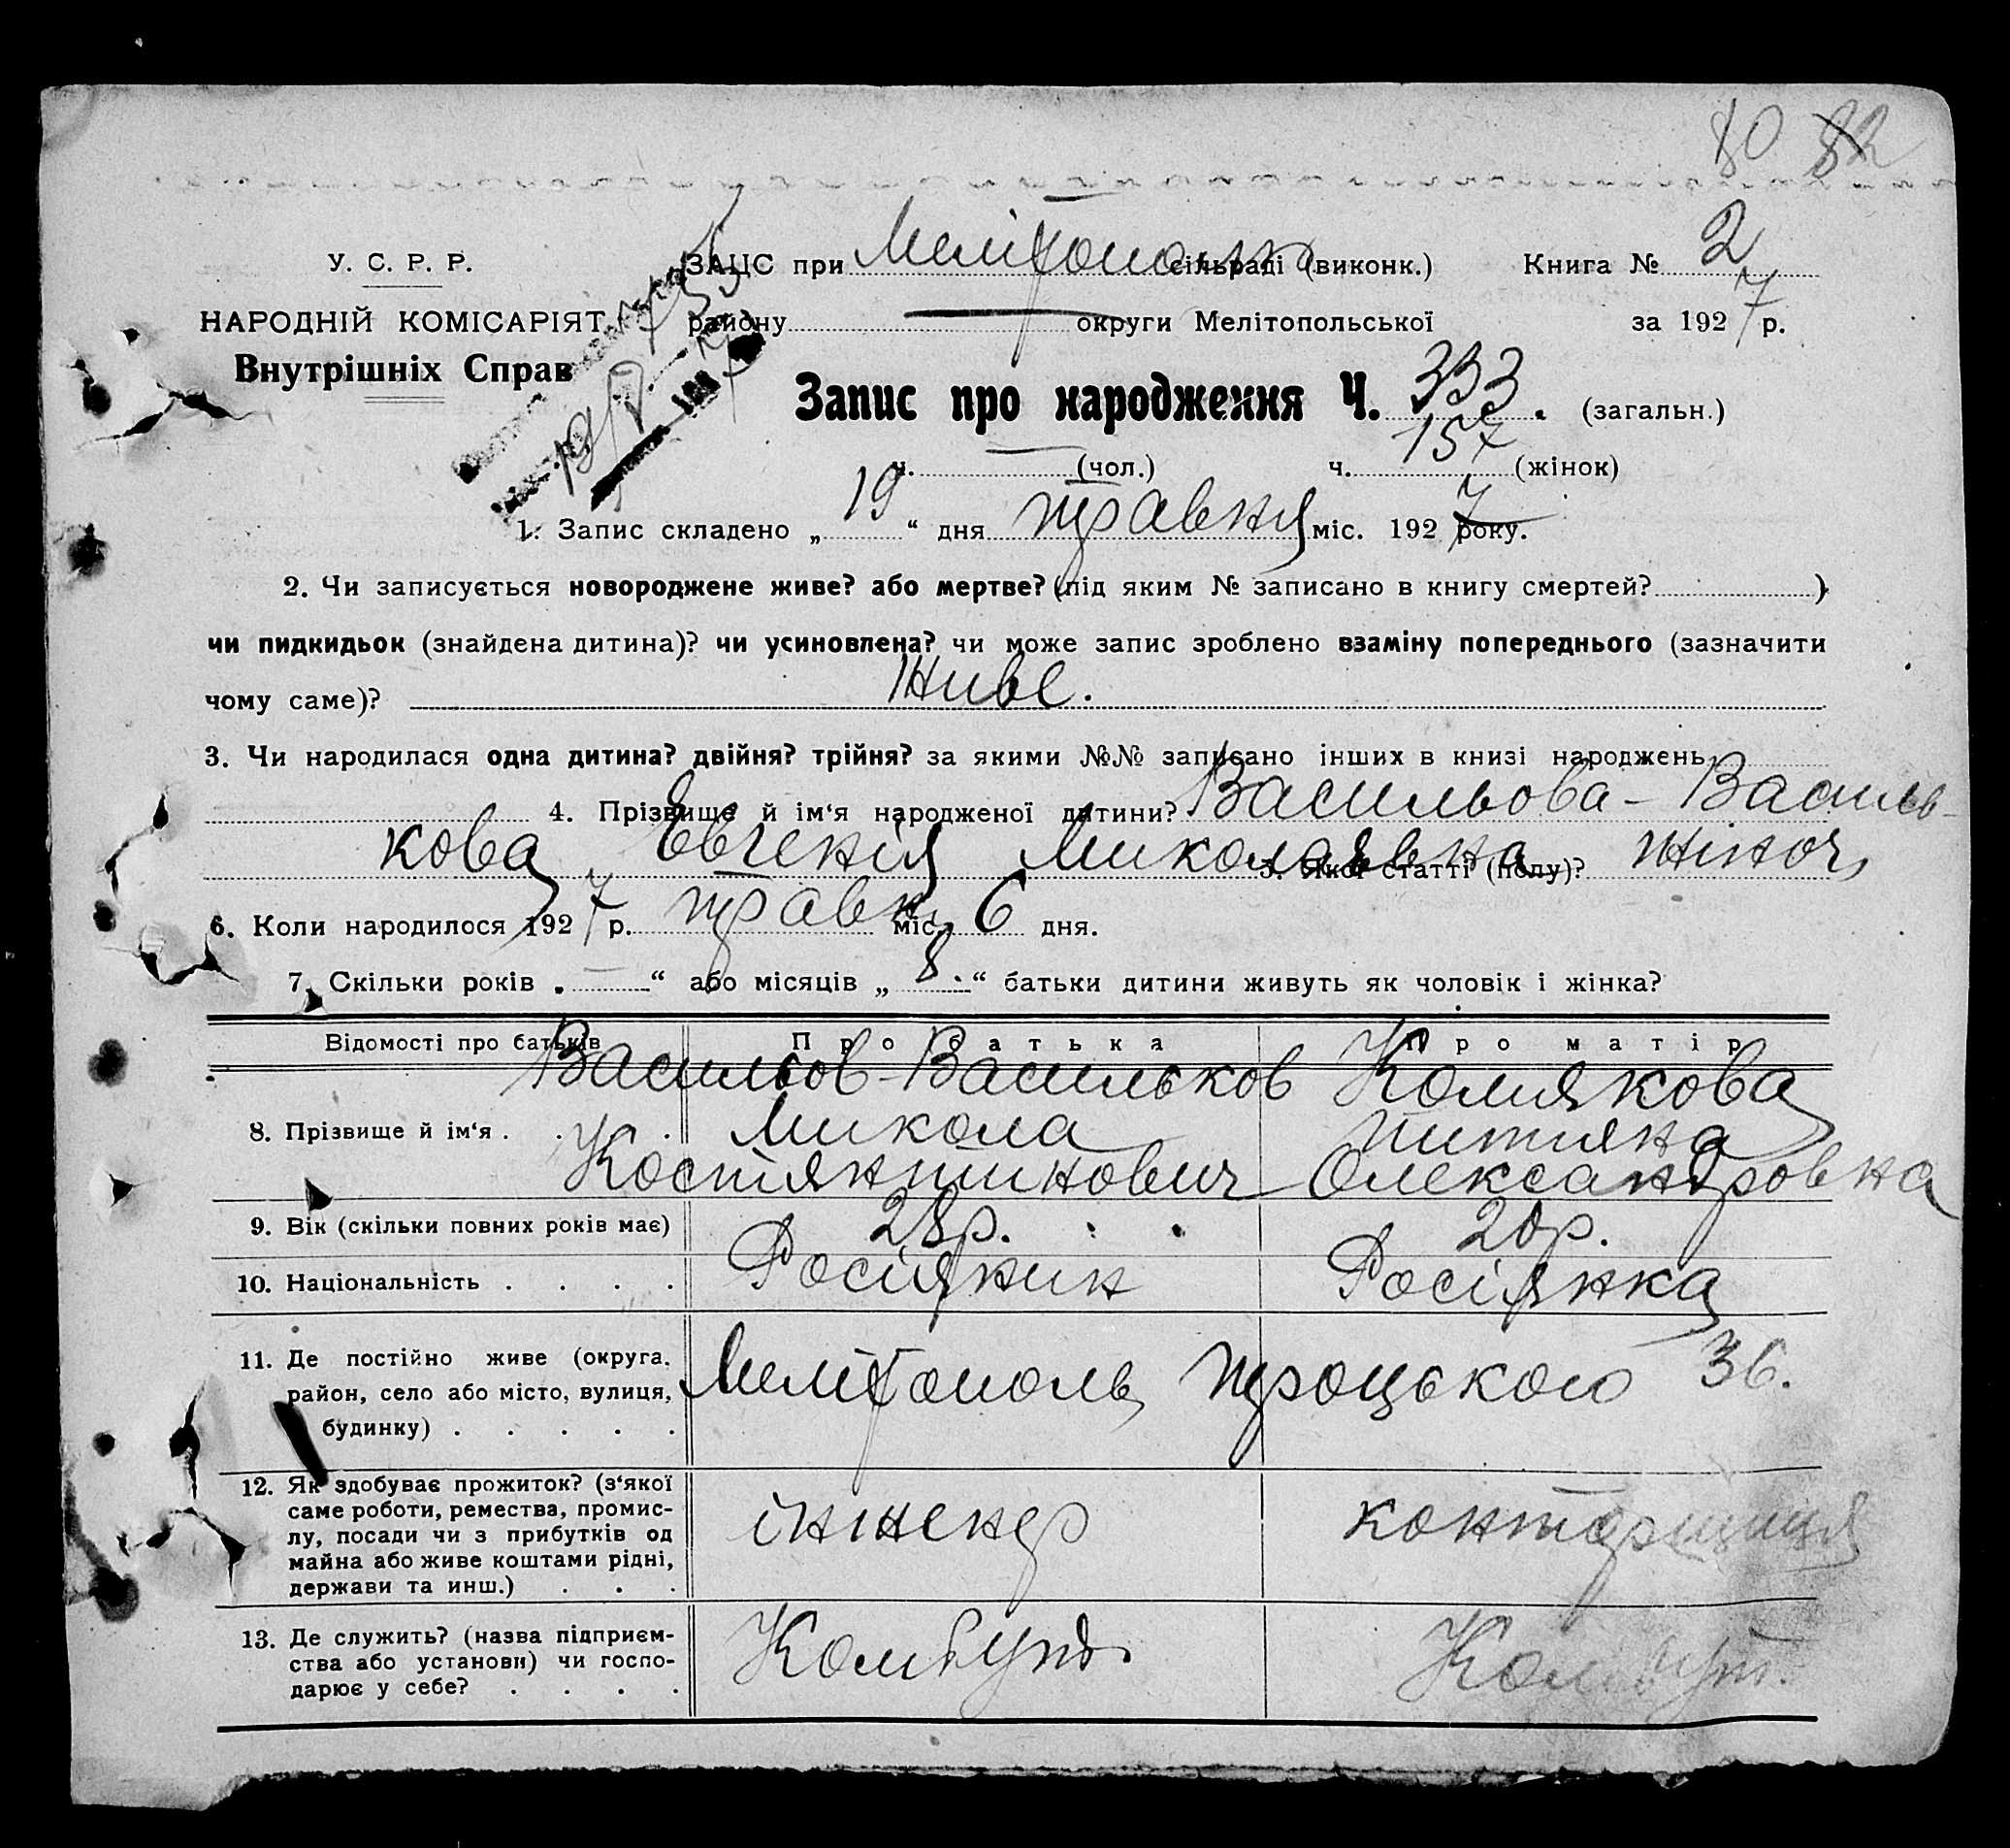 80 82
У. С. Р. Р.
НАРОДНІЙ КОМІСАРІЯТ
Внутрішніх Справ
ЗАЦС при Мелітополь сільраді (виконк.) Книга № 2
району — округи Мелітопольської за 1927 р.
Запис про народження Ч. 333. (загальн.)
ч. — (чол.) ч. 157 (жінок)
1. Запис складено „ 19 “ дня травня міс. 1927 року.
2. Чи записується новороджене живе? або мертве? (під яким № записано в книгу смертей? )
чи пидкидьок (знайдена дитина)? чи усиновлена? чи може запис зроблено взаміну попереднього (зазначити
чому саме)? Живе.
3. Чи народилася одна дитина? двійня? трійня? за якими №№ записано інших в книзі народжень
4. Прізвище й ім‘я народженої дитини? Васильова-Василь-
кова Євгенія Миколаєвна 5. Якої статті (полу)? жіноч
6. Коли народилося 1927 р. травн. міс. 6 дня.
7. Скільки років „ — “ або місяців „ 8. “ батьки дитини живуть як чоловік і жінка?
Відомості про батьків Про батька Про матір
8. Прізвище й ім‘я . . . . Васильов-Васильков Микола Костянтинович Комякова Титяна Олександровна
9. Вік (скільки повних років має) 28р. 20р.
10. Національність . . . . Росіянин Росіянка
11. Де постійно живе (округа, район, село або місто, вулиця, будинку) . . . . . Мелітополь Троцького 36.
12. Як здобуває прожиток? (з‘якої саме роботи, ремества, промислу, посади чи з прибутків од майна або живе коштами рідні, держави та инш.) . . . інженер конторщиця
13. Де служить? (назва підприємства або установи) чи господарює у себе? . . . .